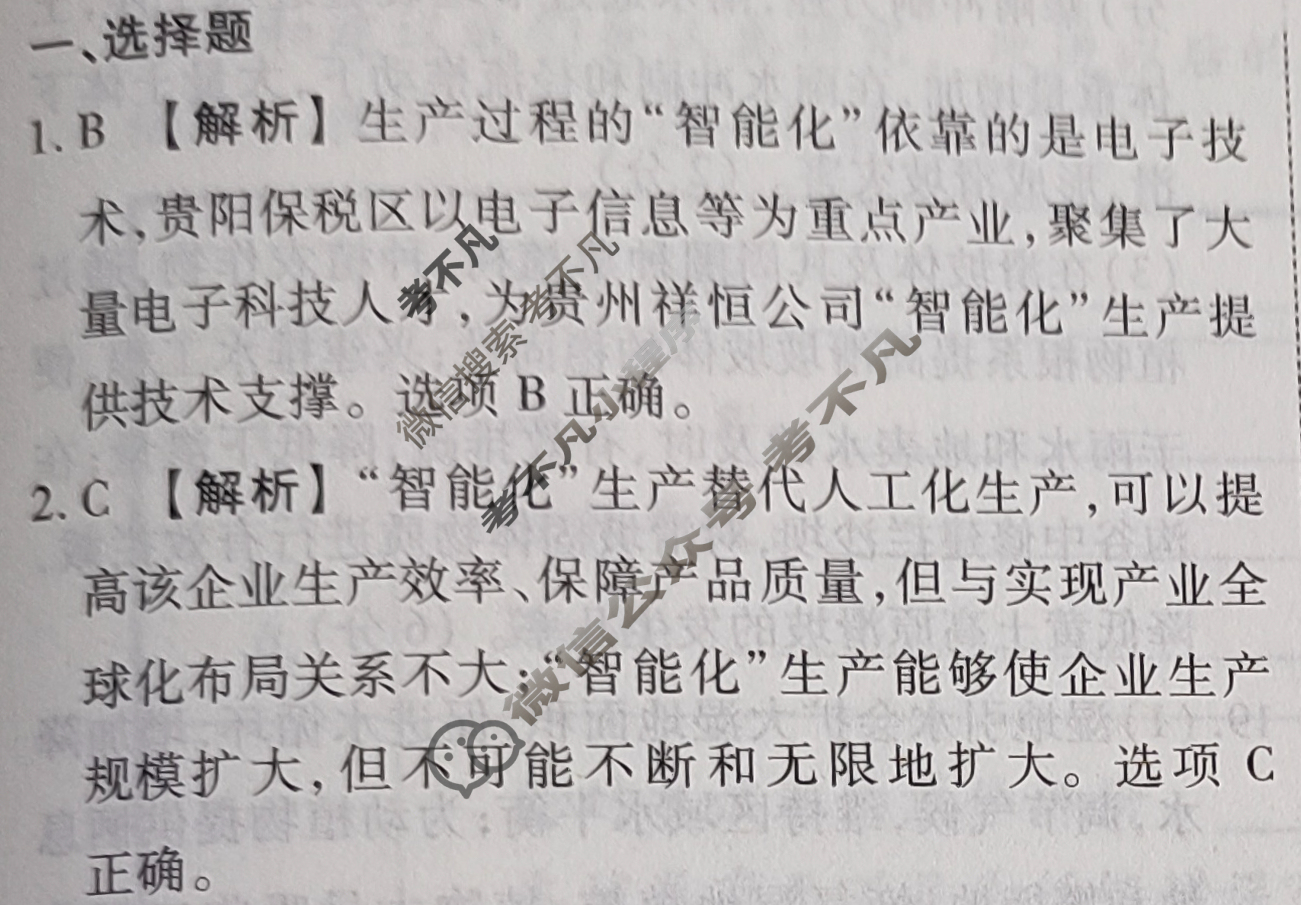 一、选择题
1. B 【解析】生产过程的“智能化”依靠的是电子技
术,贵阳保税区以电子信息等为重点产业,聚集了大
量电子科技人才,为贵州祥恒公司“智能化”生产提
供技术支撑。选项 B 正确。
2. C 【解析】“智能化”生产替代人工化生产,可以提
高该企业生产效率、保障产品质量,但与实现产业全
球化布局关系不大;“智能化”生产能够使企业生产
规模扩大,但不可能不断和无限地扩大。选项 C
正确。
考不凡
微信搜索考不凡
考不凡小程序
微信公众号考不凡